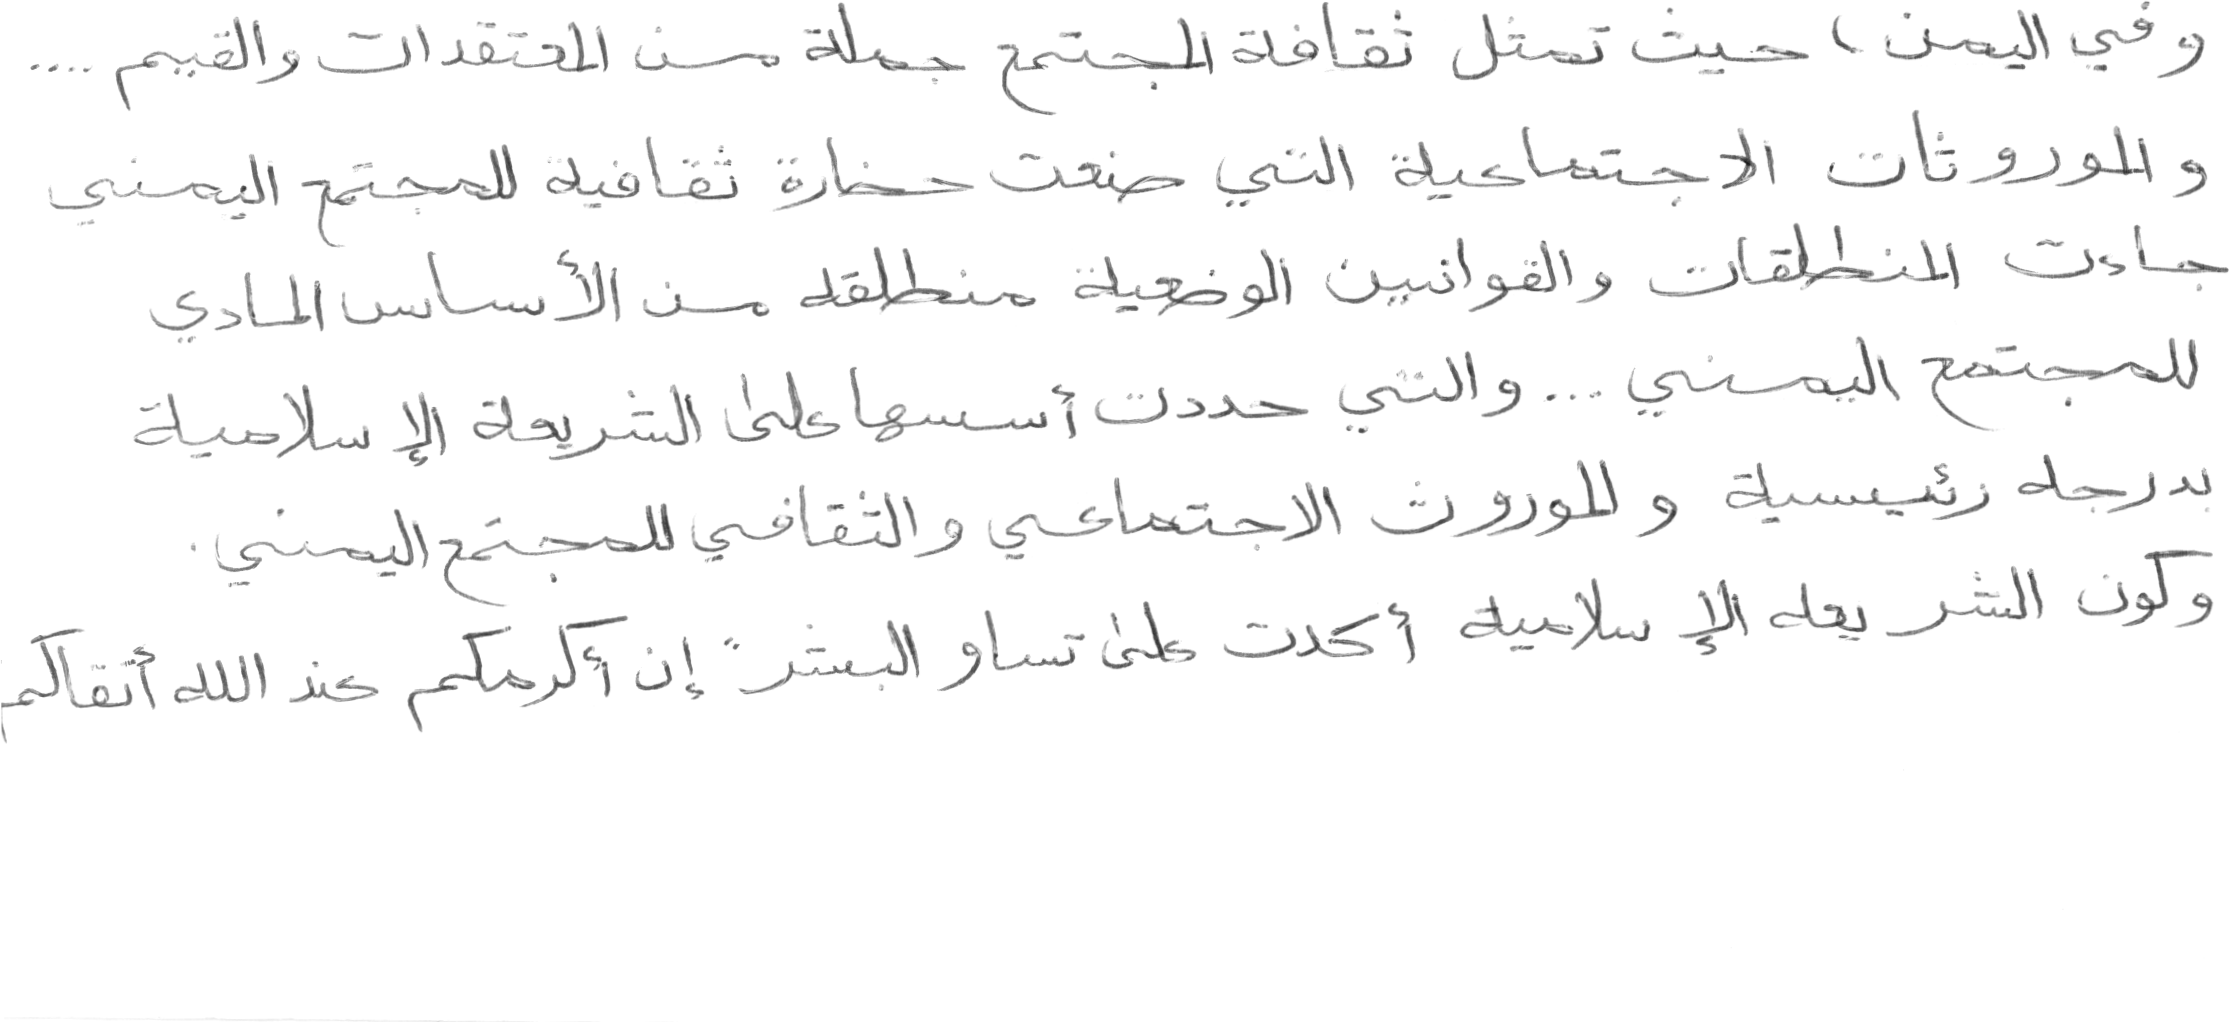 وفي اليمن، حيث تمثل ثقافة المجتمع جملة من المعتقدات والقيم ....
والموروثات الاجتماعية التي صنعت حضارة ثقافية للمجتمع اليمني
جاءت المنطلقات والقوانين الوضعية منطلقه من الأساس المادي
للمجتمع اليمني ... والتي حددت أسسها على الشريعة الإسلامية
بدرجه رئيسية والموروث الاجتماعي والثقافي للمجتمع اليمني.
وكون الشريعه الإسلامية أكدت على تساو البشر " إن أكرمكم عند الله أتقاكم